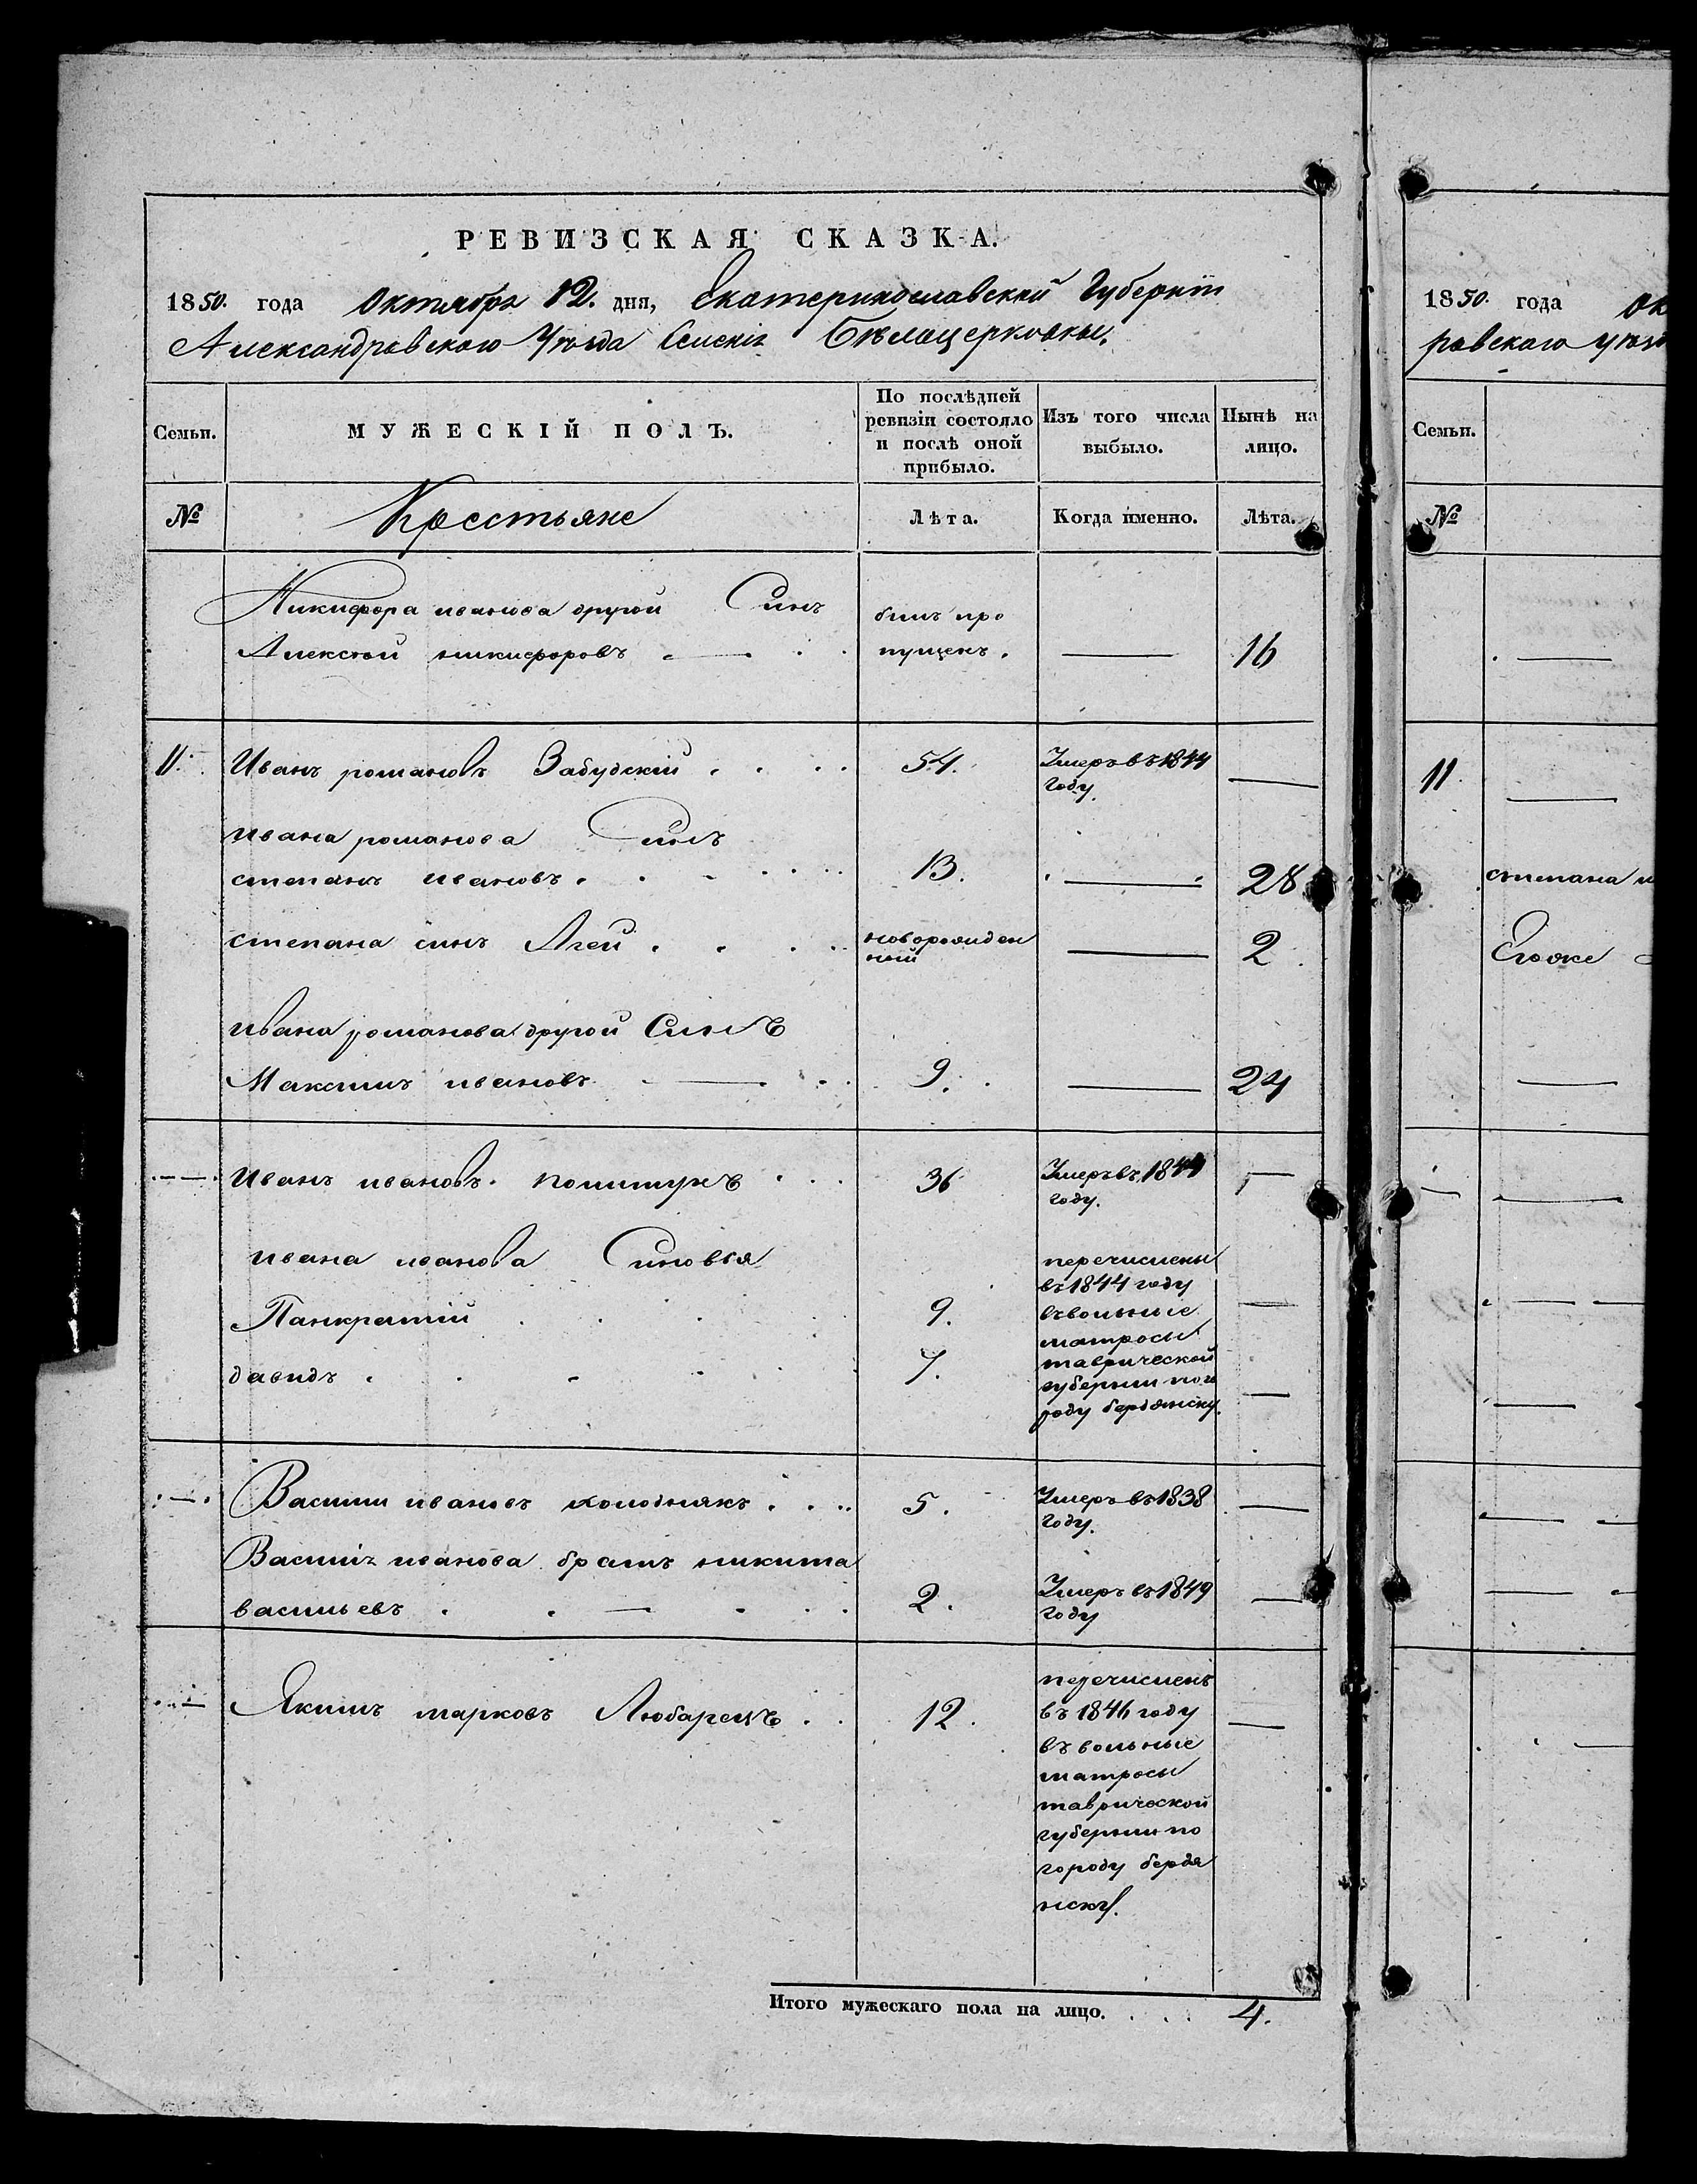 РЕВИЗСКАЯ СКАЗКА.
1850. года Октября 12. дня, Екатеринославской Губернїи
Александровского Уѣзда Селенія Бѣлоцерковки.
Семьи. МУЖЕСКІЙ ПОЛЪ. По послѣдней ревизіи состояло и послѣ оной прибыло. Изъ того числа выбыло. Нынѣ на лицо.
№ Крестьяне Лѣта. Когда именно. Лѣта.
Никифора иванова другой Синъ билъ про
Алексѣй никифоровъ пущенъ. — 16
11. Иванъ романовъ Забудскій 54. Умеръ въ 1844 году. —
ивана романова Синъ
степанъ ивановъ. 13. — 28
степана синъ Агей новорожден ный — 2
ивана романова другой Синъ
Максимъ ивановъ 9. — 24
— Иванъ ивановъ. политухъ 36 Умеръ въ 1844 году. —
ивана иванова Синовья перечислены
въ 1844 году
Панкратій 9. въ вольные —
матросы
давидъ 7. таврической
губерніи по го —
роду бердянску.
— Василий ивановъ холоднякъ 5. Умеръ въ 1838 году. —
Василія иванова братъ никита
васильевъ 2. Умеръ въ 1849 году —
— Якимъ марковъ Любарецъ 12. перечисленъ
въ 1846 году —
въ вольные
матросы
таврической
губерніи по
городу бердя
нску.
Итого мужескаго пола на лицо. 4.
1850. года Ок
ровскаго уѣзд
Семьи.
№
11. —
степана и
Егоже